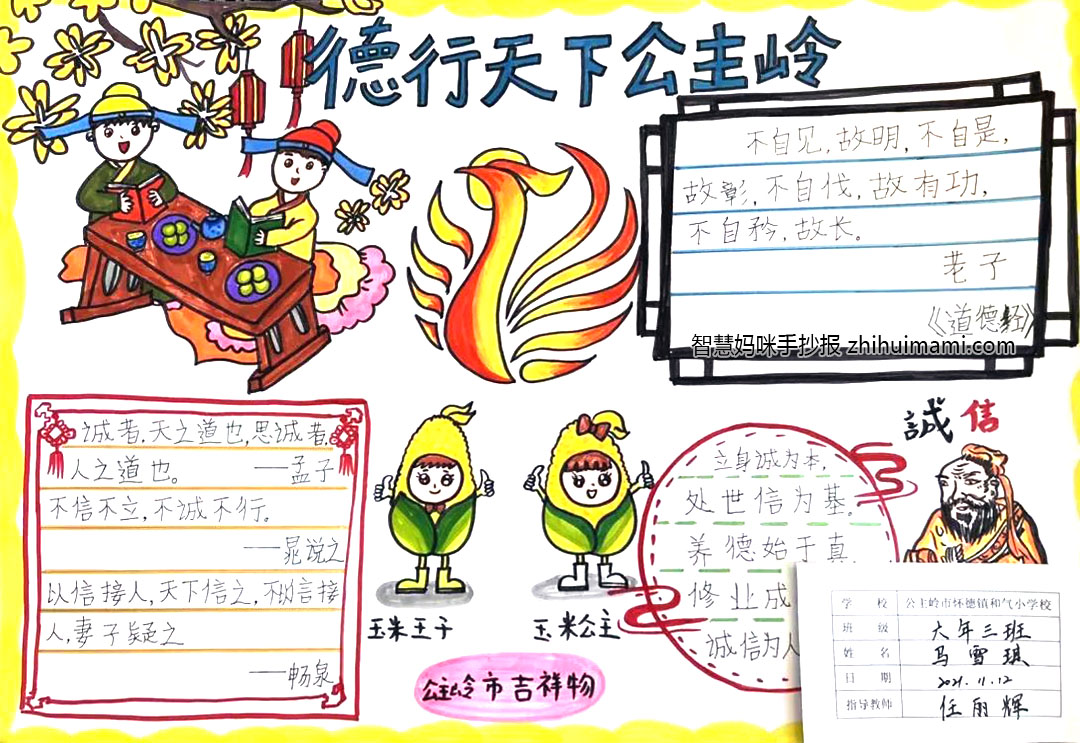 德行天下公主岭
不自见,故明,不自是,
故彰,不自伐,故有功,
不自矜,故长。
老子
《道德经》
智慧妈咪手抄报 zhihuimami.com
诚者,天之道也,思诚者,
人之道也。 ——孟子
不信不立,不诚不行。
——晁说之
以信接人,天下信之,不以信接
人,妻子疑之
——畅泉
玉米王子
玉米公主
公主岭市吉祥物
誠信
立身诚为本,
处世信为基。
养德始于真,
修业成
诚信为人
学校 公主岭市怀德镇和气小学校
班级 六年三班
姓名 马雪琪
日期 2021.11.12
指导教师 任丽辉